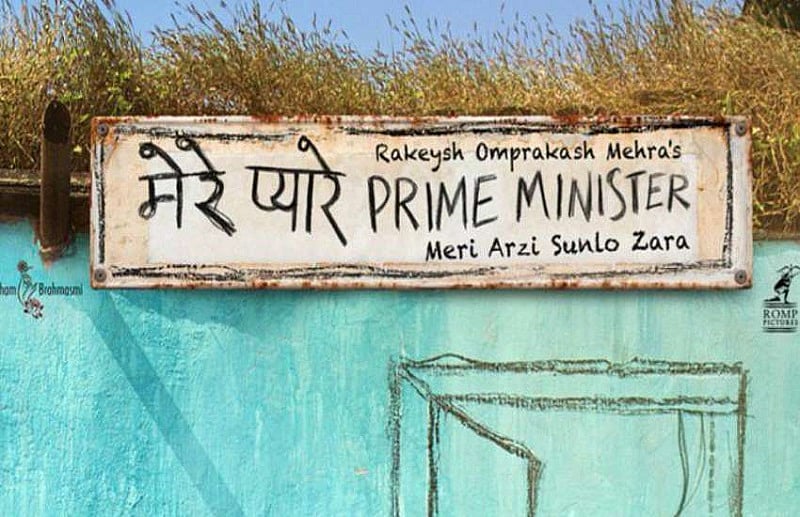 Rakeysh Omprakash Mehra's
मेरे प्यारे PRIME MINISTER
Meri Arzi Sunlo Zara
ham Brahmasmi
ROMP
PICTURES